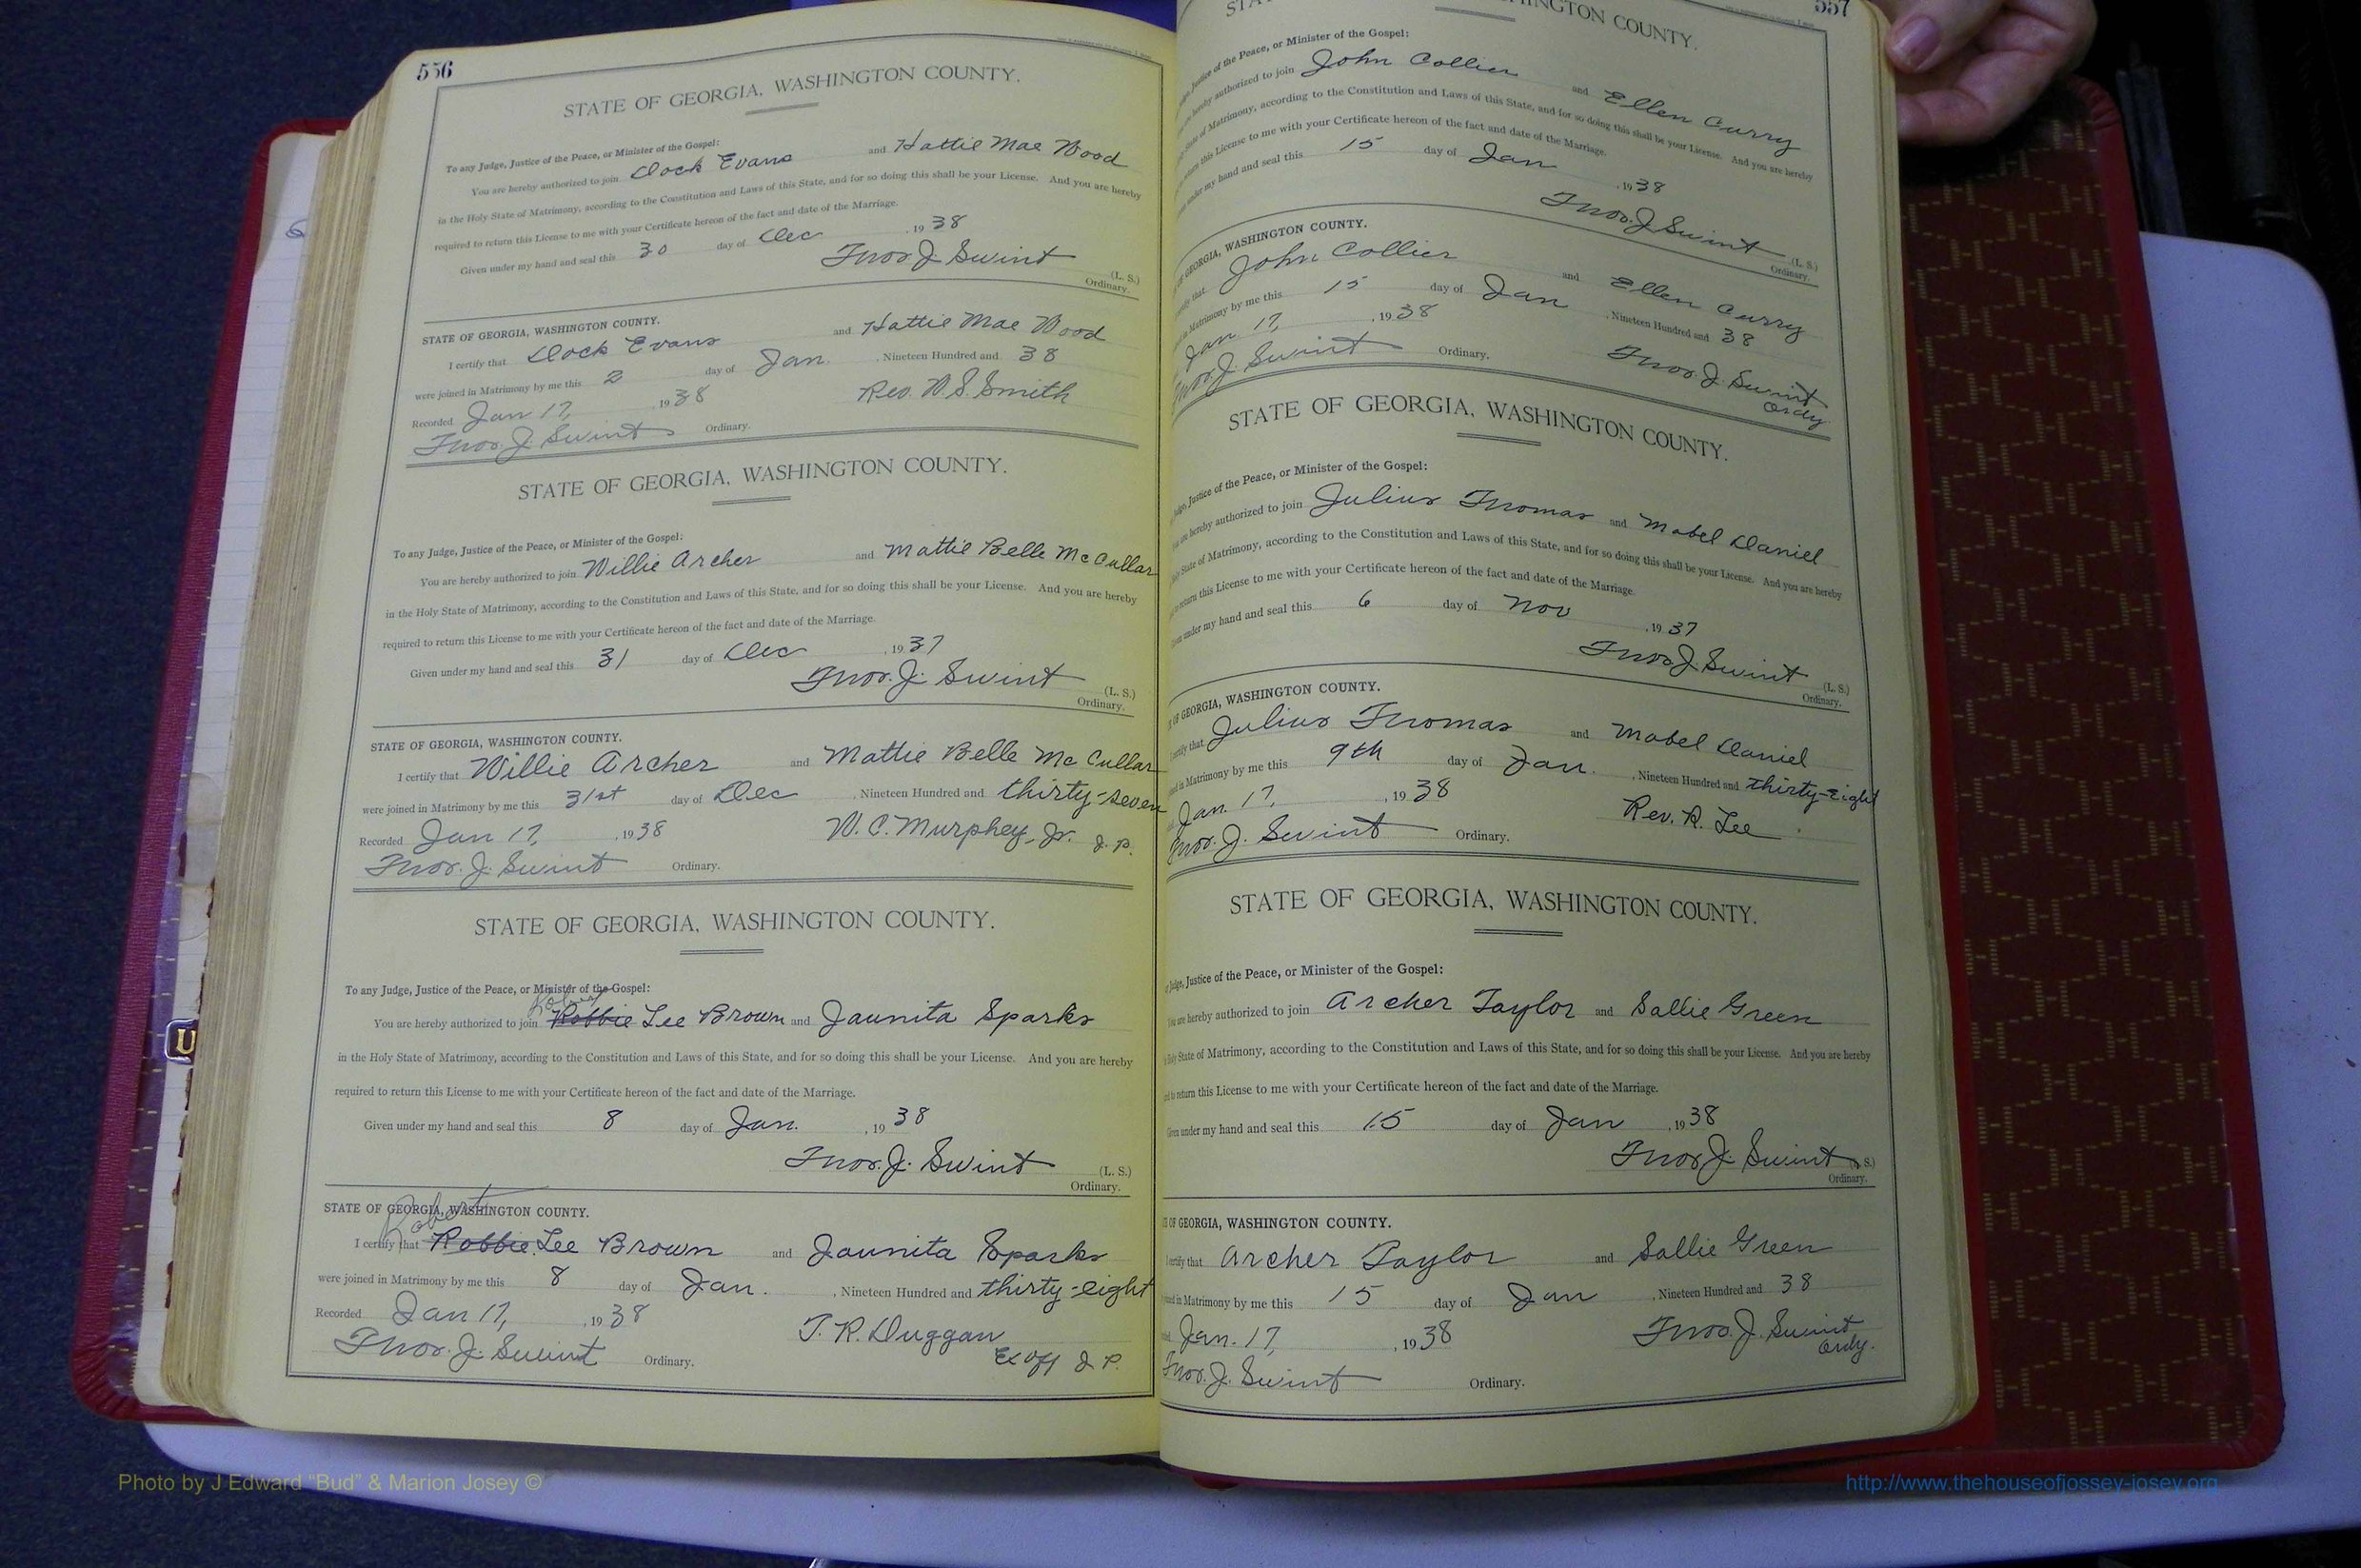 556
STATE OF GEORGIA, WASHINGTON COUNTY.
To any Judge, Justice of the Peace, or Minister of the Gospel:
You are hereby authorized to join Dock Evans and Hattie Mae Wood
in the Holy State of Matrimony, according to the Constitution and Laws of this State, and for so doing this shall be your License. And you are hereby
required to return this License to me with your Certificate hereon of the fact and date of the Marriage.
Given under my hand and seal this 30 day of Dec , 19 38
Thos. J. Swint (L. S.)
Ordinary.
STATE OF GEORGIA, WASHINGTON COUNTY.
I certify that Dock Evans and Hattie Mae Wood
were joined in Matrimony by me this 2 day of Jan. , Nineteen Hundred and 38
Recorded Jan 17, , 19 38 Rev. W. S. Smith
Thos. J. Swint Ordinary.
STATE OF GEORGIA, WASHINGTON COUNTY.
To any Judge, Justice of the Peace, or Minister of the Gospel:
You are hereby authorized to join Willie Archer and Mattie Belle McCullar
in the Holy State of Matrimony, according to the Constitution and Laws of this State, and for so doing this shall be your License. And you are hereby
required to return this License to me with your Certificate hereon of the fact and date of the Marriage.
Given under my hand and seal this 31 day of Dec , 19 37
Thos. J. Swint (L. S.)
Ordinary.
STATE OF GEORGIA, WASHINGTON COUNTY.
I certify that Willie Archer and Mattie Belle McCullar
were joined in Matrimony by me this 31st day of Dec , Nineteen Hundred and thirty-seven
Recorded Jan 17, , 19 38 W. C. Murphey, Jr. J. P.
Thos. J. Swint Ordinary.
STATE OF GEORGIA, WASHINGTON COUNTY.
To any Judge, Justice of the Peace, or Minister of the Gospel:
Robert
You are hereby authorized to join Robbie Lee Brown and Jaunita Sparks
in the Holy State of Matrimony, according to the Constitution and Laws of this State, and for so doing this shall be your License. And you are hereby
required to return this License to me with your Certificate hereon of the fact and date of the Marriage.
Given under my hand and seal this 8 day of Jan. , 19 38
Thos. J. Swint (L. S.)
Ordinary.
STATE OF GEORGIA, WASHINGTON COUNTY.
Robert
I certify that Robbie Lee Brown and Jaunita Sparks
were joined in Matrimony by me this 8 day of Jan. , Nineteen Hundred and thirty-eight
Recorded Jan 17, , 19 38 T. R. Duggan
Thos. J. Swint Ordinary. Ex off J. P.
557
WASHINGTON COUNTY.
Justice of the Peace, or Minister of the Gospel:
hereby authorized to join John Collier and Ellen Curry
State of Matrimony, according to the Constitution and Laws of this State, and for so doing this shall be your License. And you are hereby
return this License to me with your Certificate hereon of the fact and date of the Marriage.
under my hand and seal this 15 day of Jan , 19 38
Thos. J. Swint (L. S.)
Ordinary.
GEORGIA, WASHINGTON COUNTY.
that John Collier and Ellen Curry
in Matrimony by me this 15 day of Jan , Nineteen Hundred and 38
Jan 17, , 19 38 Thos. J. Swint
Thos. J. Swint Ordinary. Ordy
STATE OF GEORGIA, WASHINGTON COUNTY.
Judge, Justice of the Peace, or Minister of the Gospel:
You are hereby authorized to join Julius Thomas and Mabel Daniel
State of Matrimony, according to the Constitution and Laws of this State, and for so doing this shall be your License. And you are hereby
to return this License to me with your Certificate hereon of the fact and date of the Marriage.
under my hand and seal this 6 day of Nov , 19 37
Thos. J. Swint (L. S.)
Ordinary.
OF GEORGIA, WASHINGTON COUNTY.
certify that Julius Thomas and Mabel Daniel
in Matrimony by me this 9th day of Jan. , Nineteen Hundred and thirty-eight
Jan. 17, , 19 38 Rev. R. Lee
Thos. J. Swint Ordinary.
STATE OF GEORGIA, WASHINGTON COUNTY.
Judge, Justice of the Peace, or Minister of the Gospel:
You are hereby authorized to join Archer Taylor and Sallie Green
Holy State of Matrimony, according to the Constitution and Laws of this State, and for so doing this shall be your License. And you are hereby
to return this License to me with your Certificate hereon of the fact and date of the Marriage.
Given under my hand and seal this 15 day of Jan , 19 38
Thos. J. Swint (L. S.)
Ordinary.
OF GEORGIA, WASHINGTON COUNTY.
I certify that Archer Taylor and Sallie Green
joined in Matrimony by me this 15 day of Jan , Nineteen Hundred and 38
Jan. 17, , 19 38 Thos. J. Swint
Ordy.
Thos. J. Swint Ordinary.
Photo by J Edward "Bud" & Marion Josey ©
http://www.thehouseofjossey-josey.org